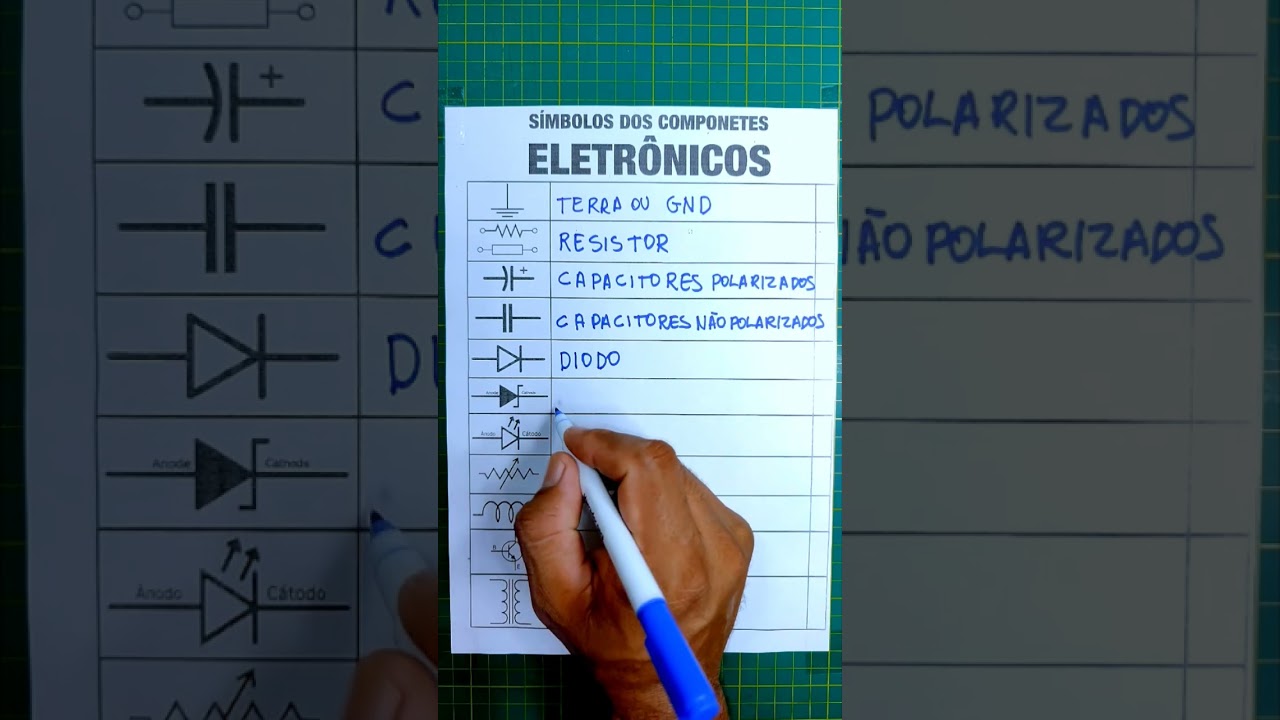 SÍMBOLOS DOS COMPONETES
ELETRÔNICOS
TERRA OU GND
RESISTOR
+
CAPACITORES POLARIZADOS
CAPACITORES NÃO POLARIZADOS
DIODO
Anodo Cathodo
Ânodo Cátodo
B
E
+
C
POLARIZADOS
C
NÃO POLARIZADOS
DI
Anode Cathode
Ânodo Cátodo